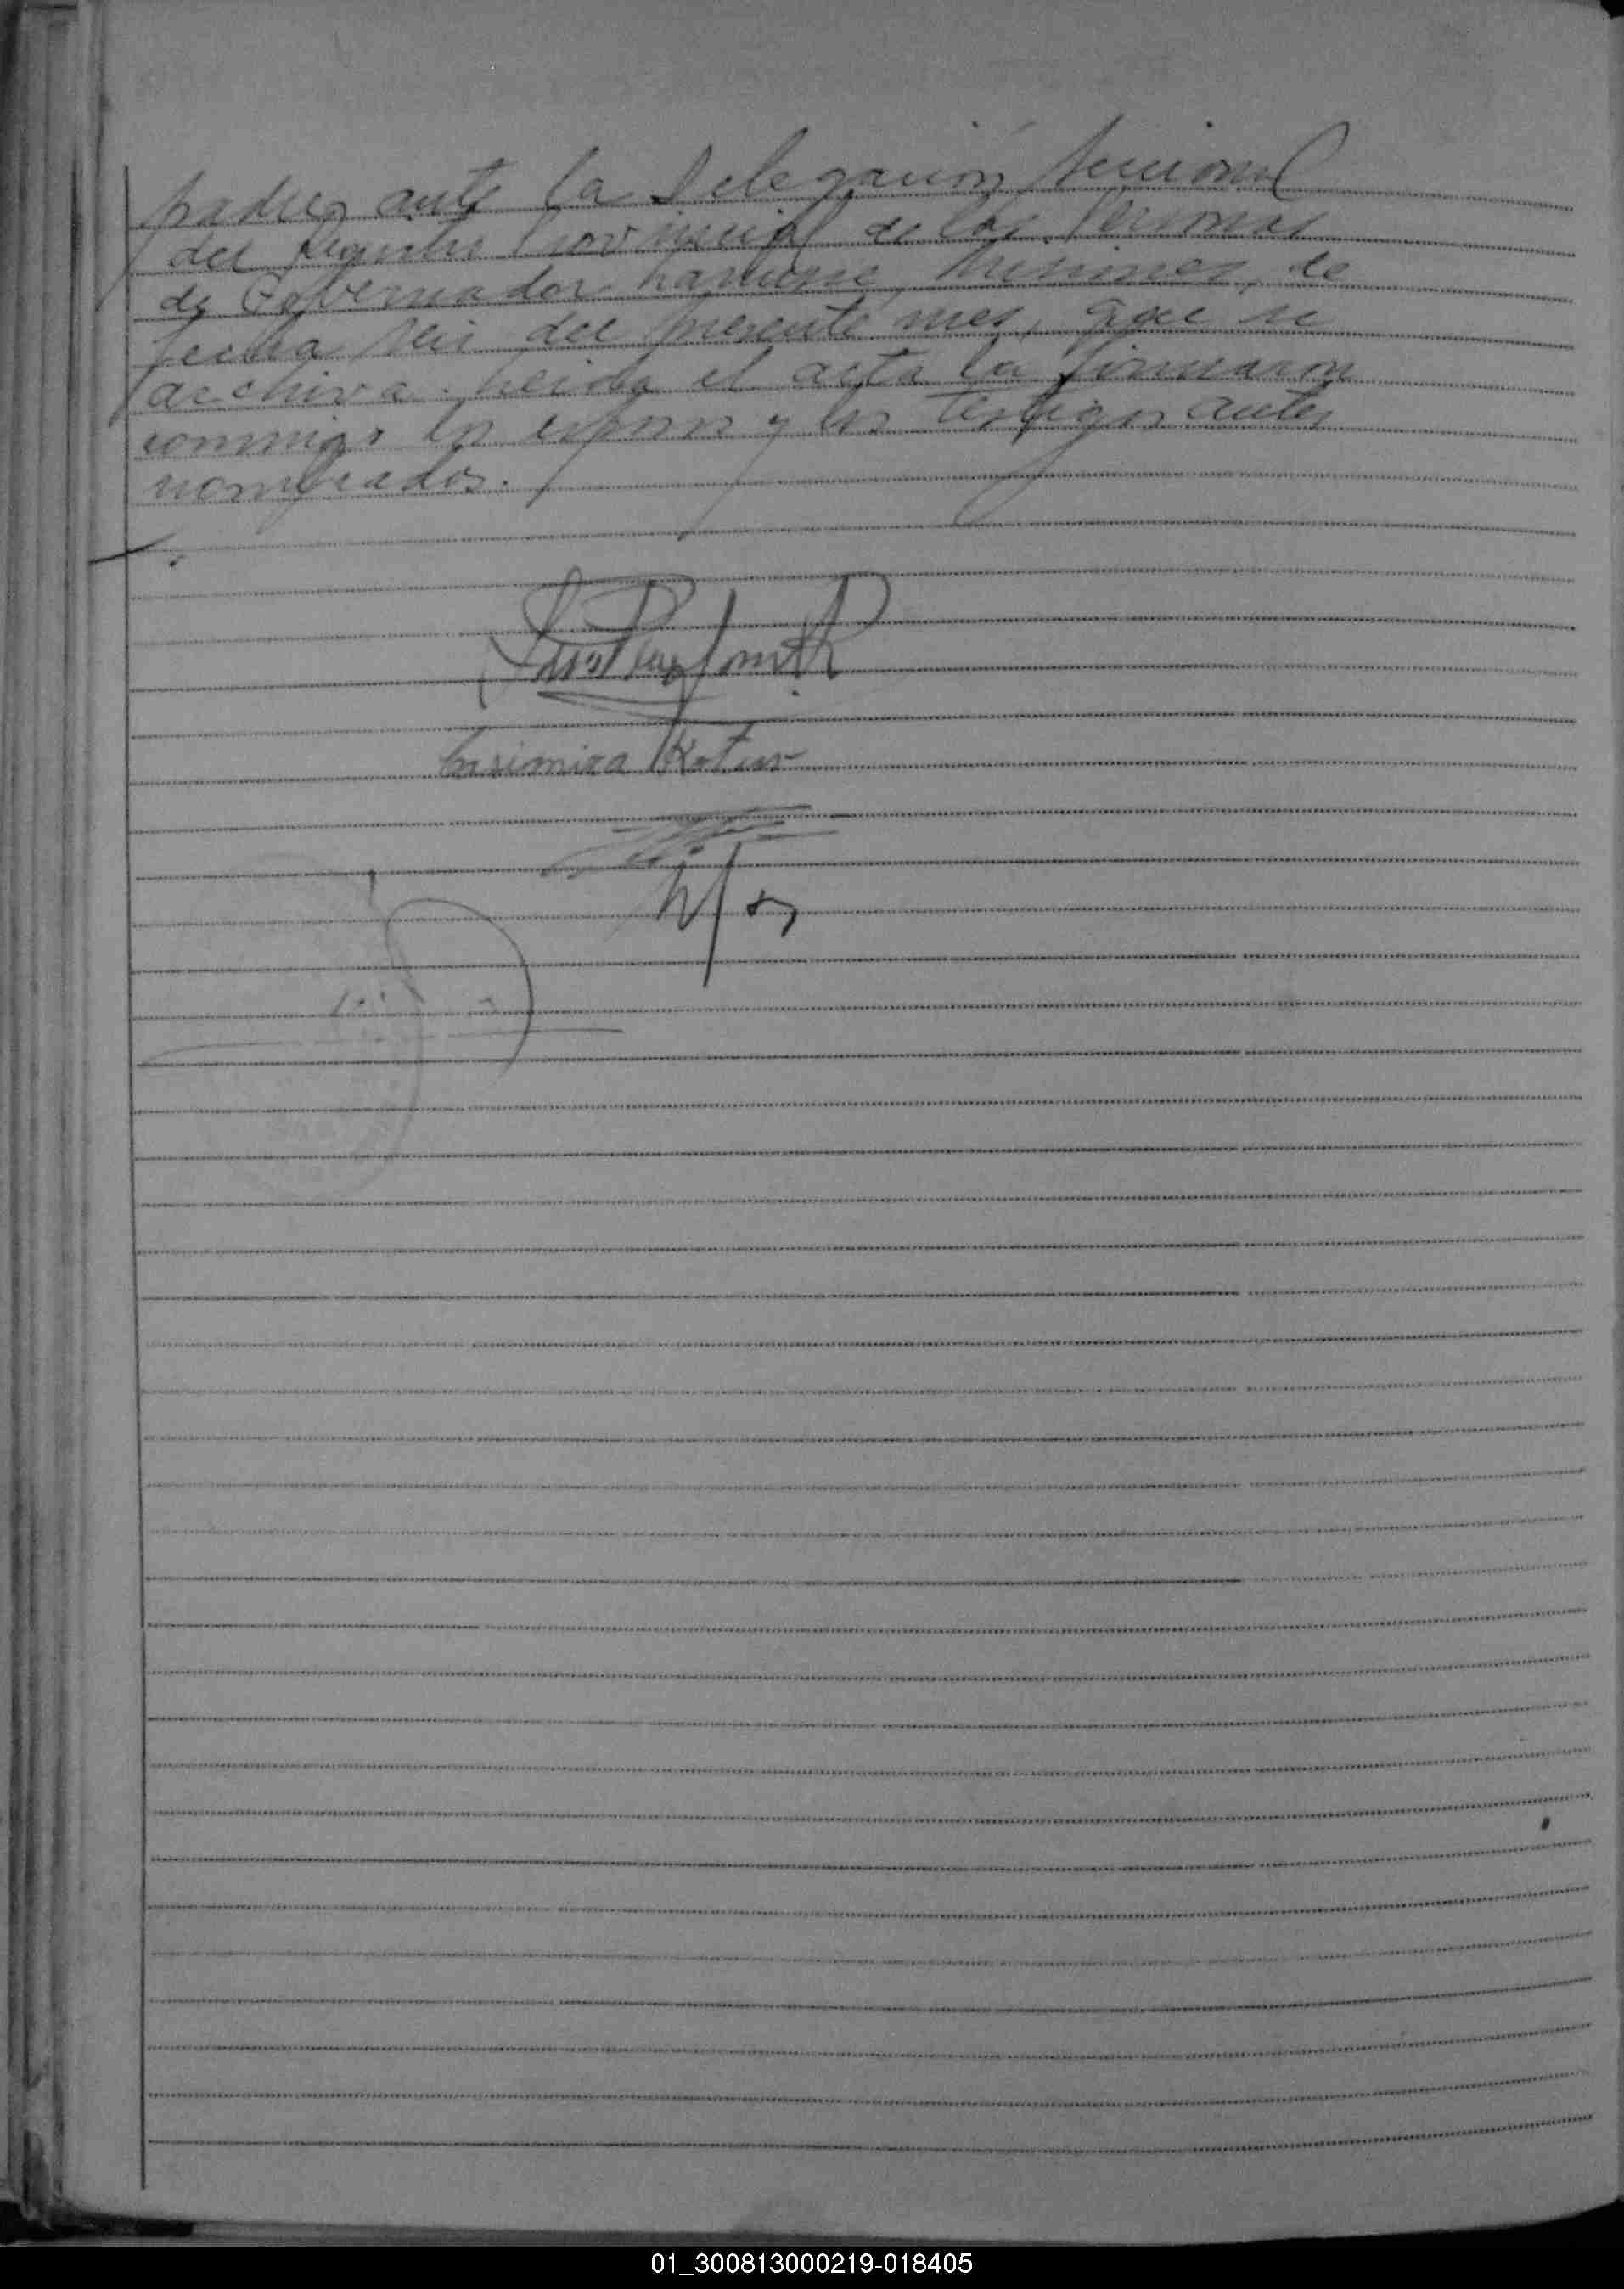 padres ante la Delegación Seccional
del Registro Provincial de las Personas
de Gobernador Lanusse, Misiones, de
fecha seis del presente mes, que se
archiva. Leida el acta la firmaron
conmigo los esposos y los testigos antes
nombrados.
Casimira
01_300813000219-018405